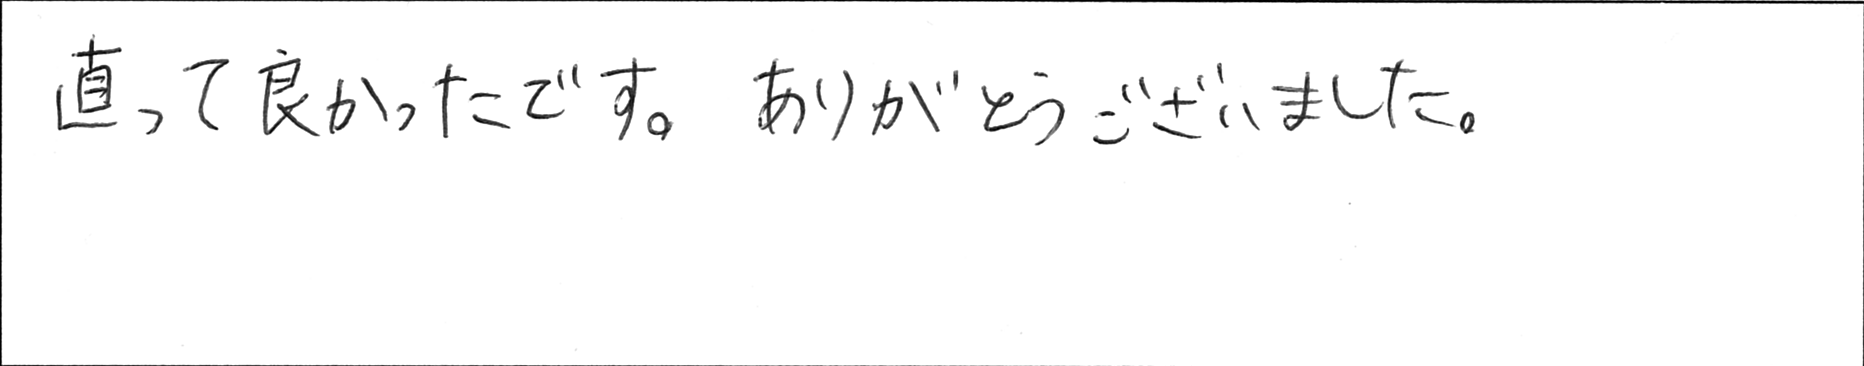 直って良かったです。ありがとうございました。